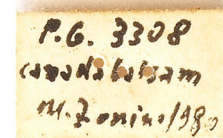 P.G. 3308
canadabalsam
M. Zonino/198